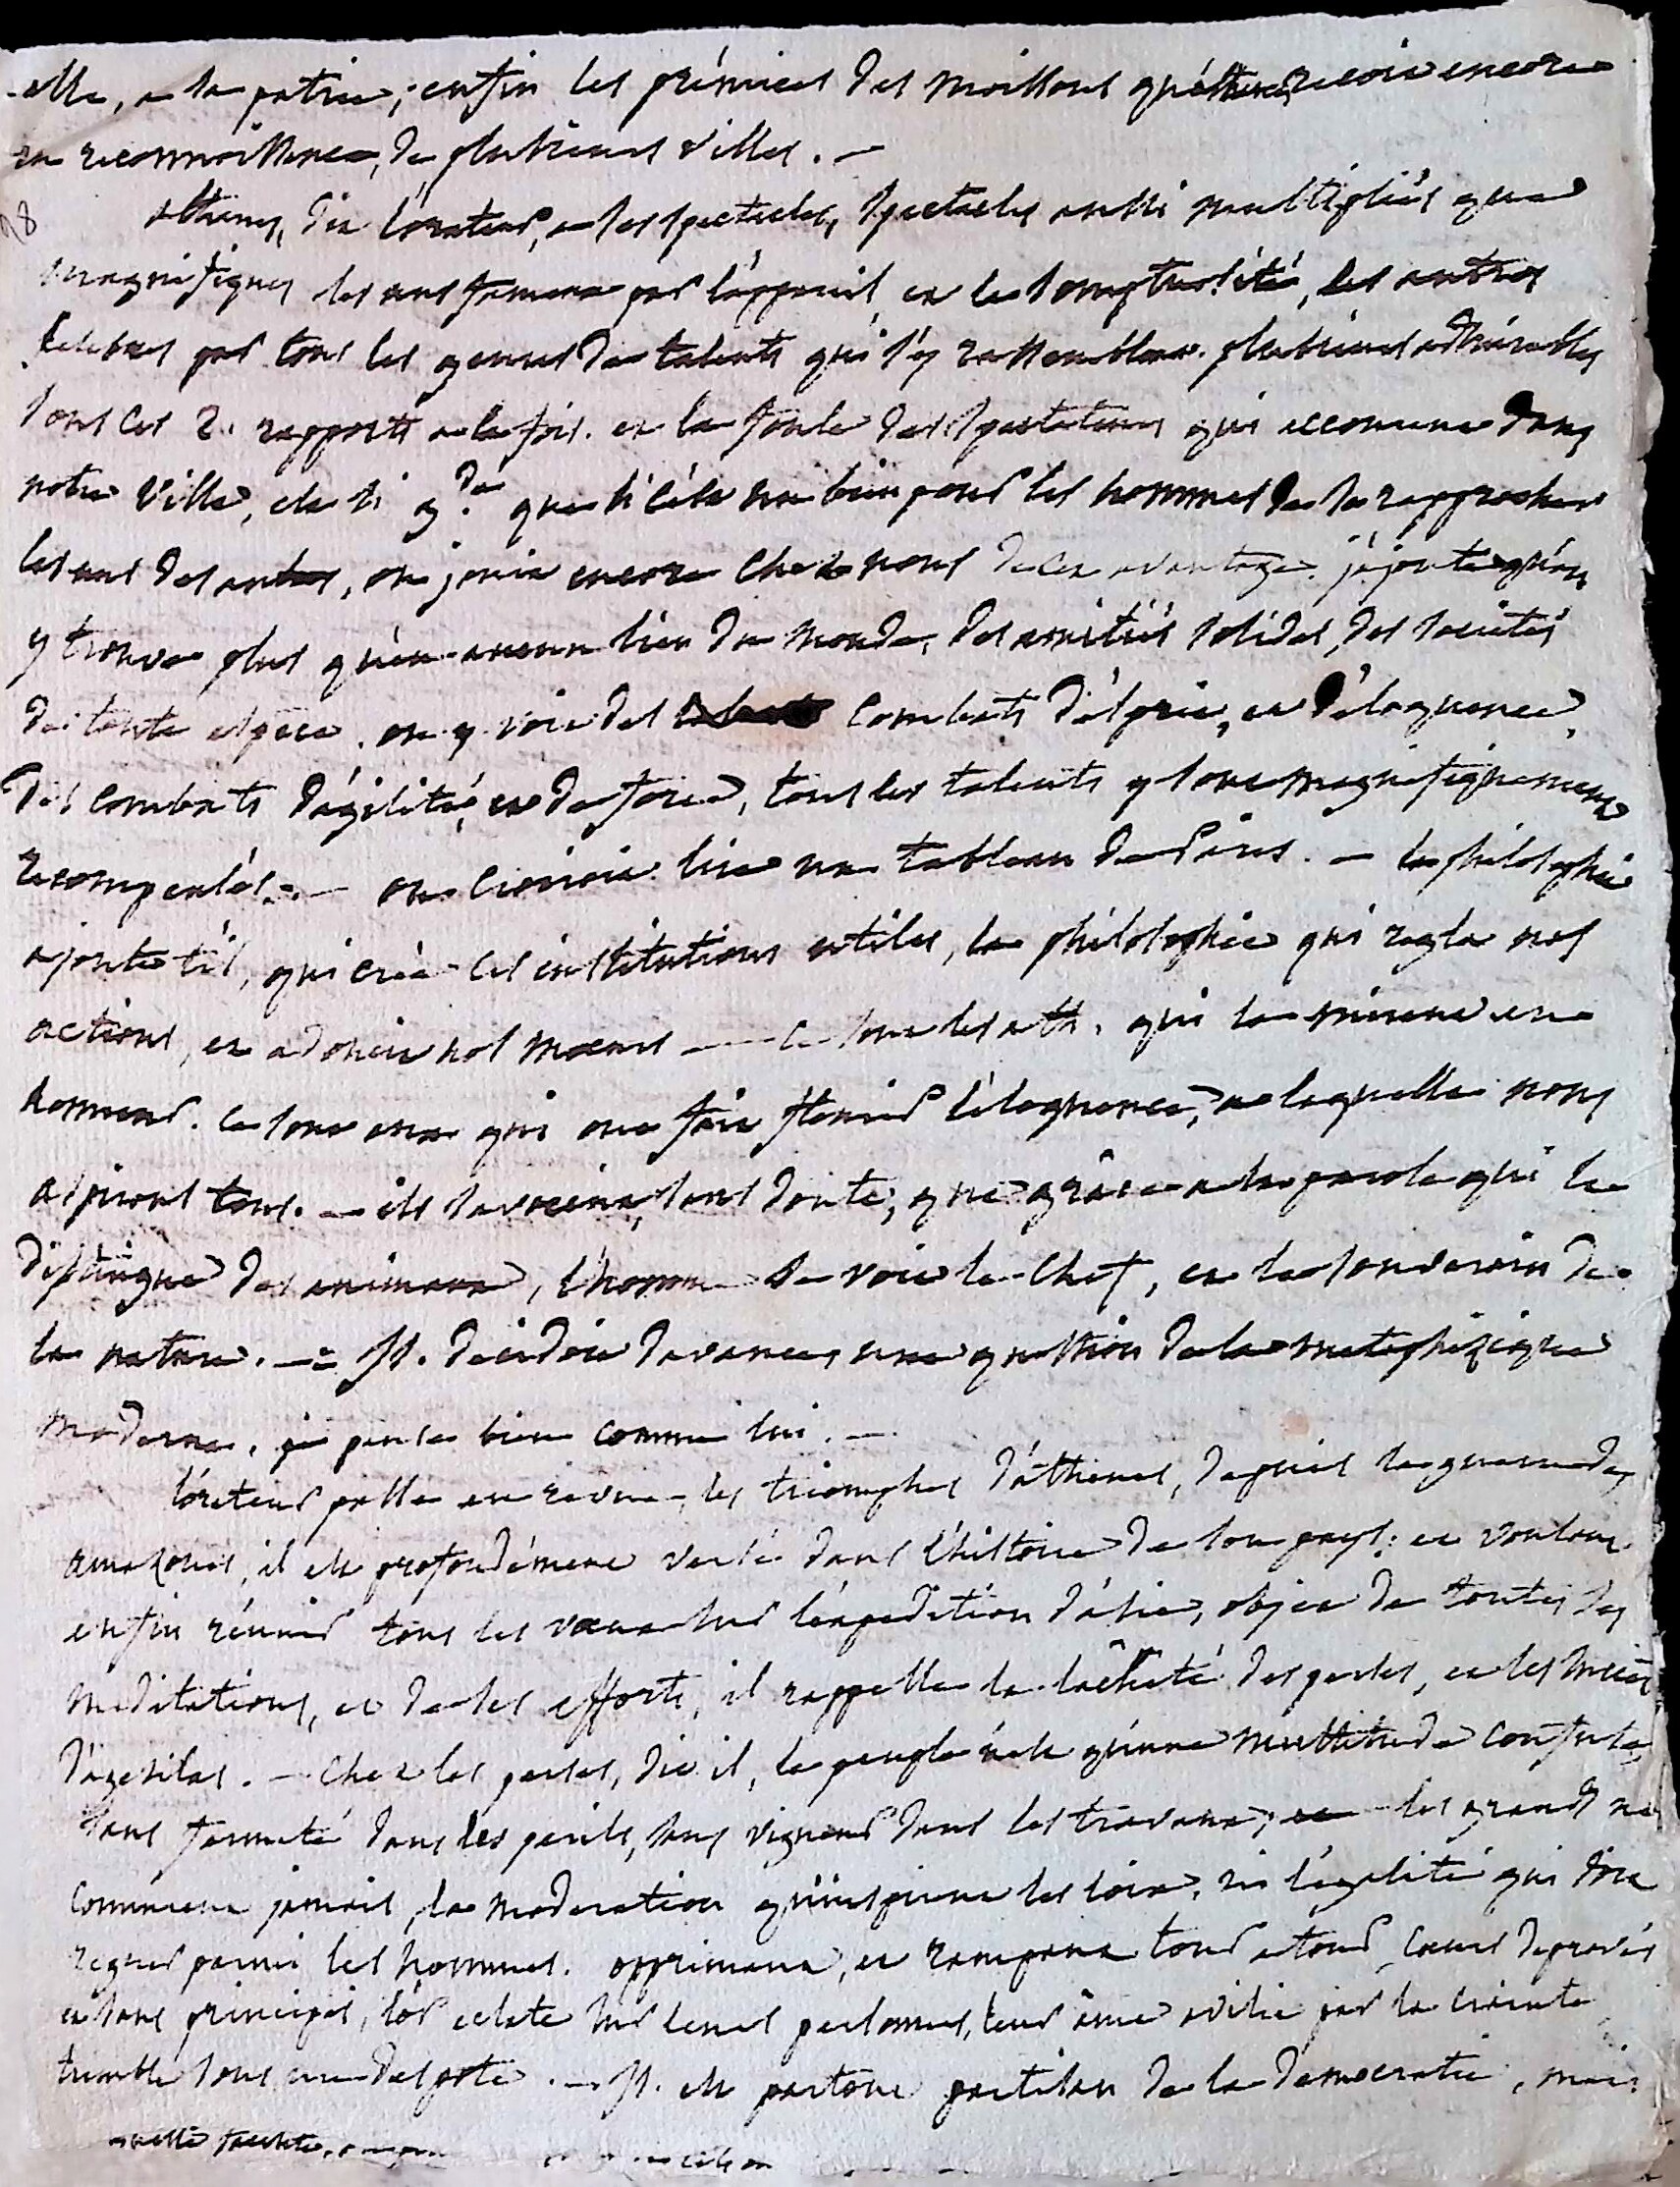 -elle, a la patrie; enfin les prémices des moissons qu'athenes recoit encore
en reconnoissance, de plusieurs villes. —
98
athenes, dit l'orateur, a ses spectacles, spectacles aussi multipliés que
magnifiques les uns fameux par l'appareil, et la somptuosité, les autres
celebres par tous les genres de talents qui s'y rassemblent. plusieurs admirables
sous ces 2. rapports a la fois. et la foule des spectateurs qui accourent dans
notre ville, est si gde. que si c'est un bien pour les hommes de se rapprocher
les uns des autres, on jouit encore chez nous de cet avantage. j'ajoute qu'on
y trouve plus qu'en aucun lieu du monde, des amitiés solides, des societés
de toute espece. on y voit des combats d'esprit, et d'eloquence,
des combats d'agilité, et de force, tous les talents y sont magnifiquement
recompensés. — on croiroit lire un tableau de Paris. — la philosophie
ajoute t'il, qui créa ces institutions utiles, la philosophie qui regla nos
actions, et adoucit nos moeurs — ce sont les ath. qui la mirent en
honneur. ce sont eux qui ont fait fleurir l'éloquence, a laquelle nous
aspirons tous. — ils savoient, sans doute, que grâce a la parole qui le
distingue des animaux, l'homme se voit le chef, et le souverain de
la nature. — Is. decidoit d'avance, une question de la metaphizique
moderne. je pense bien comme lui. —
l'orateur passe en revue, les triomphes d'athenes, depuis la guerre des
amazones, il est profondément versé dans l'histoire de son pays: et voulant
enfin réunir tous les voeux sur l'expedition d'asie, objet de toutes ses
meditations, et de ses efforts, il rappelle la lâcheté des perses, et les succès
d'agesilas. — chez les perses, dit il, le peuple n'est qu'une multitude confuse,
sans fermeté dans les perils, sans vigueur dans les travaux; les grands ne
connurent jamais, la moderation qu'inspirent les loix, ni l'égalité qui doit
regner parmi les hommes. opprimant, et rampant tour a tour, coeurs depravés
et sans principes, l'or eclate sur leurs personnes, leur âme avilie par la crainte
tremble sous un despote. — Is. est partout partisan de la democratie, mais